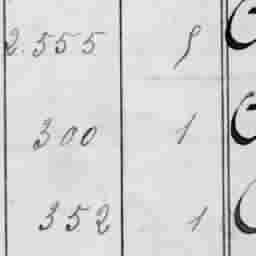 2.555 5
300 1
352 1